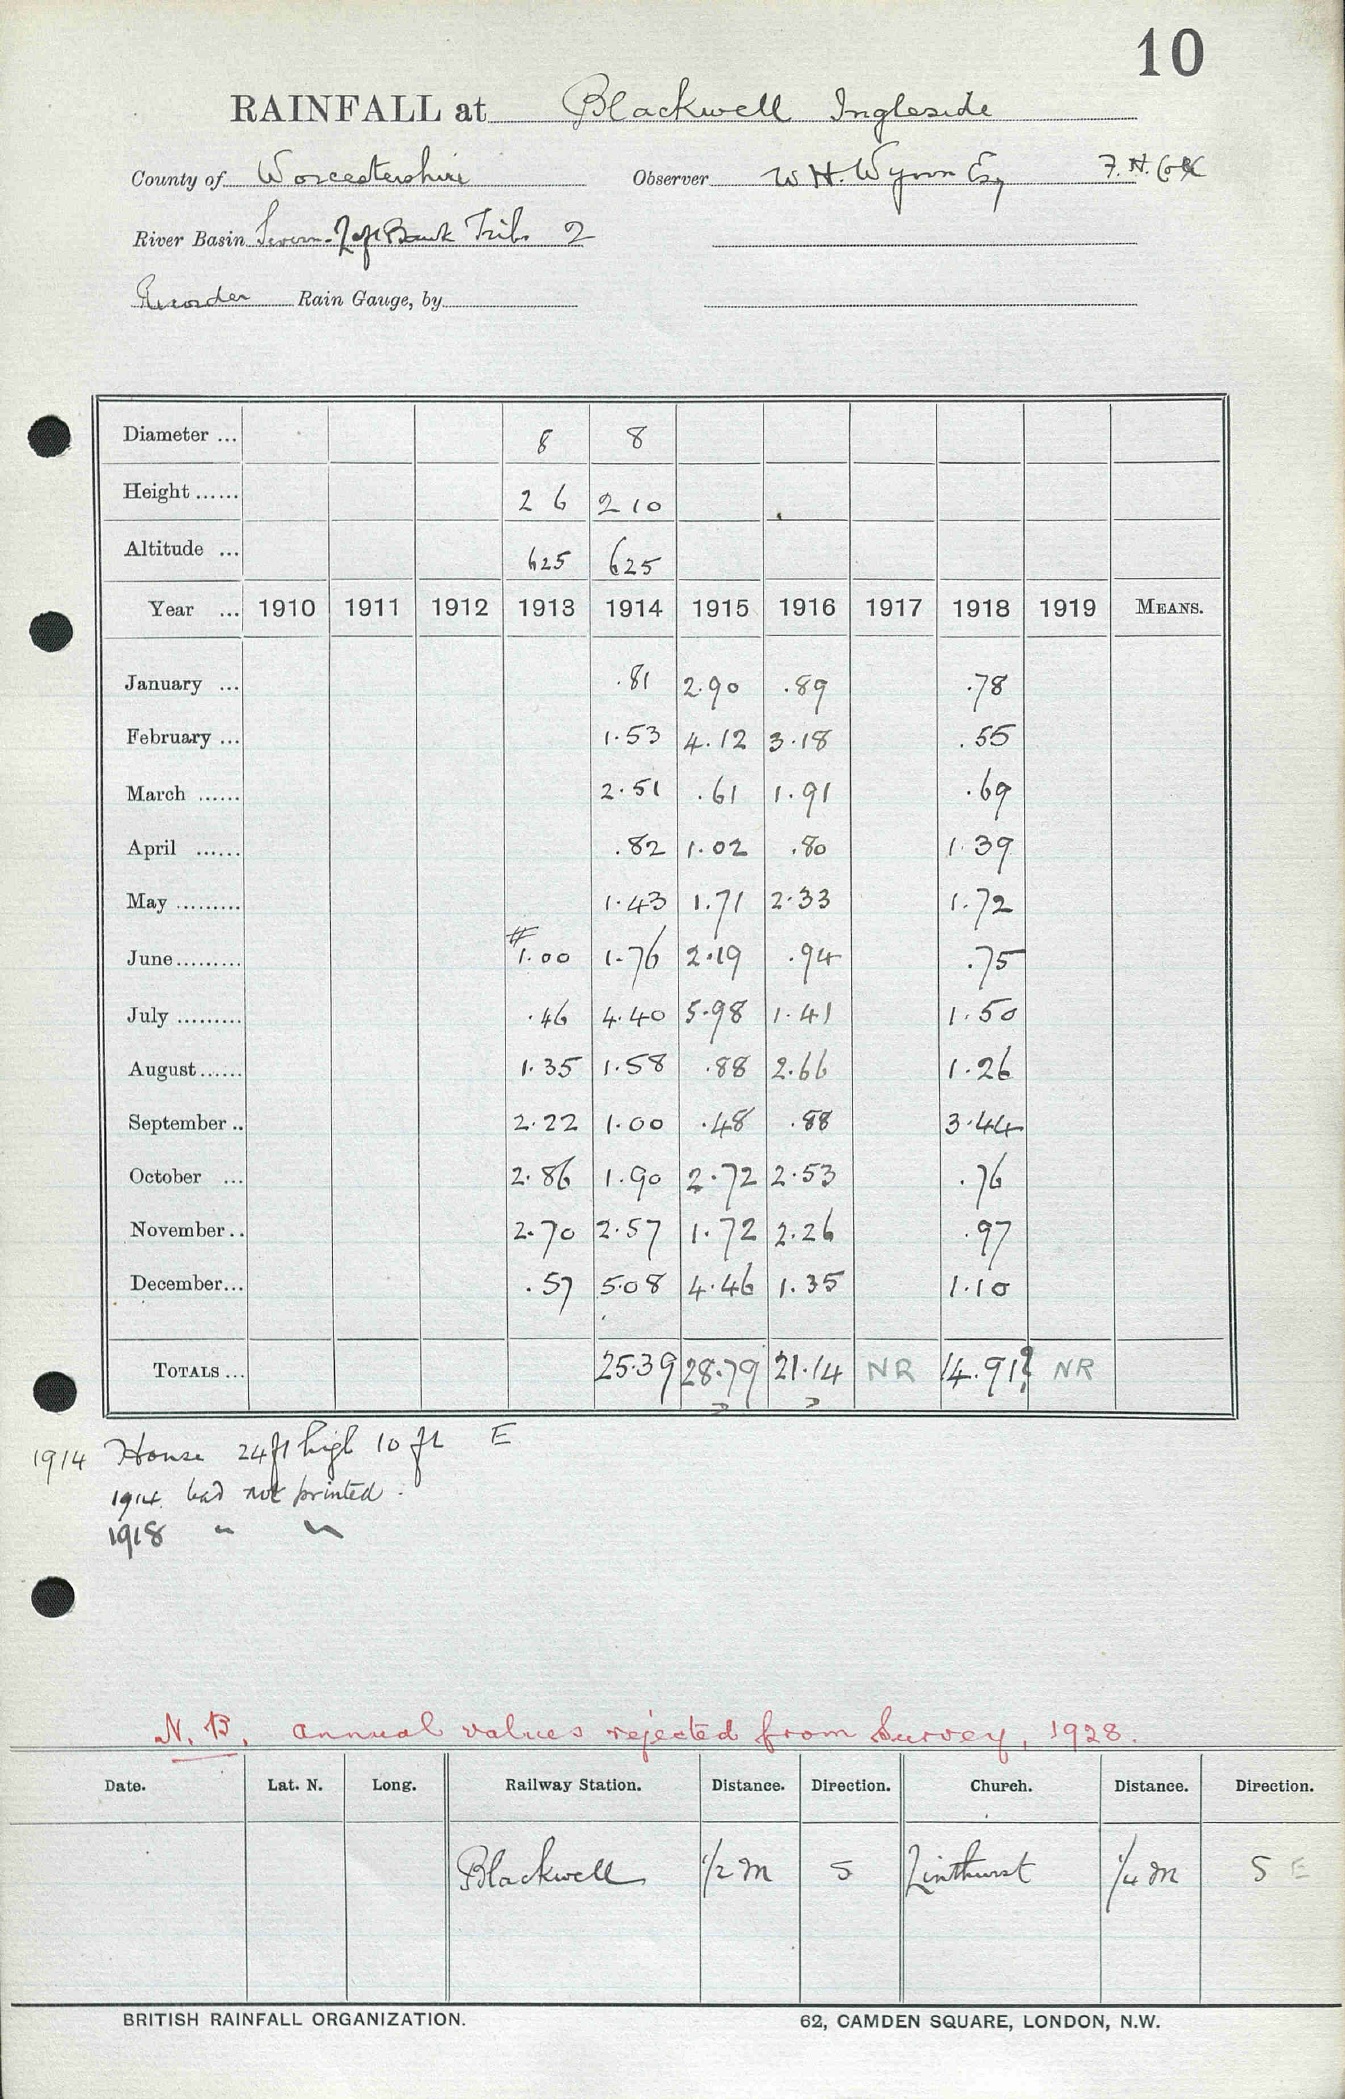 10
RAINFALL at Blackwell Ingleside
County of Worcestershire Observer W H. Wynn Esq F. H. Cox
River Basin Severn - Left Bank Tribs 2
Recorder Rain Gauge, by
Diameter ... 8 8
Height ...... 2 6 2 10
Altitude ... 625 625
Year ... 1910 1911 1912 1913 1914 1915 1916 1917 1918 1919 MEANS.
January ... .81 2.90 .89 .78
February ... 1.53 4.12 3.18 .55
March ...... 2.51 .61 1.91 .69
April ...... .82 1.02 .80 1.39
May ......... 1.43 1.71 2.33 1.72
June ......... # 1.00 1.76 2.19 .94 .75
July ......... .46 4.40 5.98 1.41 1.50
August ...... 1.35 1.58 .88 2.66 1.26
September .. 2.22 1.00 .48 .88 3.44
October ... 2.86 1.90 2.72 2.53 .76
November .. 2.70 2.57 1.72 2.26 .97
December ... .57 5.08 4.46 1.35 1.10
TOTALS ... 25.39 28.79 21.14 NR 14.91? NR
1914 House 24ft high 10 ft E
1914 bad not printed.
1918 " "
N.B. annual values rejected from Survey, 1928.
Date. Lat. N. Long. Railway Station. Distance. Direction. Church. Distance. Direction.
Blackwell 1/2 m S Linthurst 1/4 m S E
BRITISH RAINFALL ORGANIZATION. 62, CAMDEN SQUARE, LONDON, N.W.